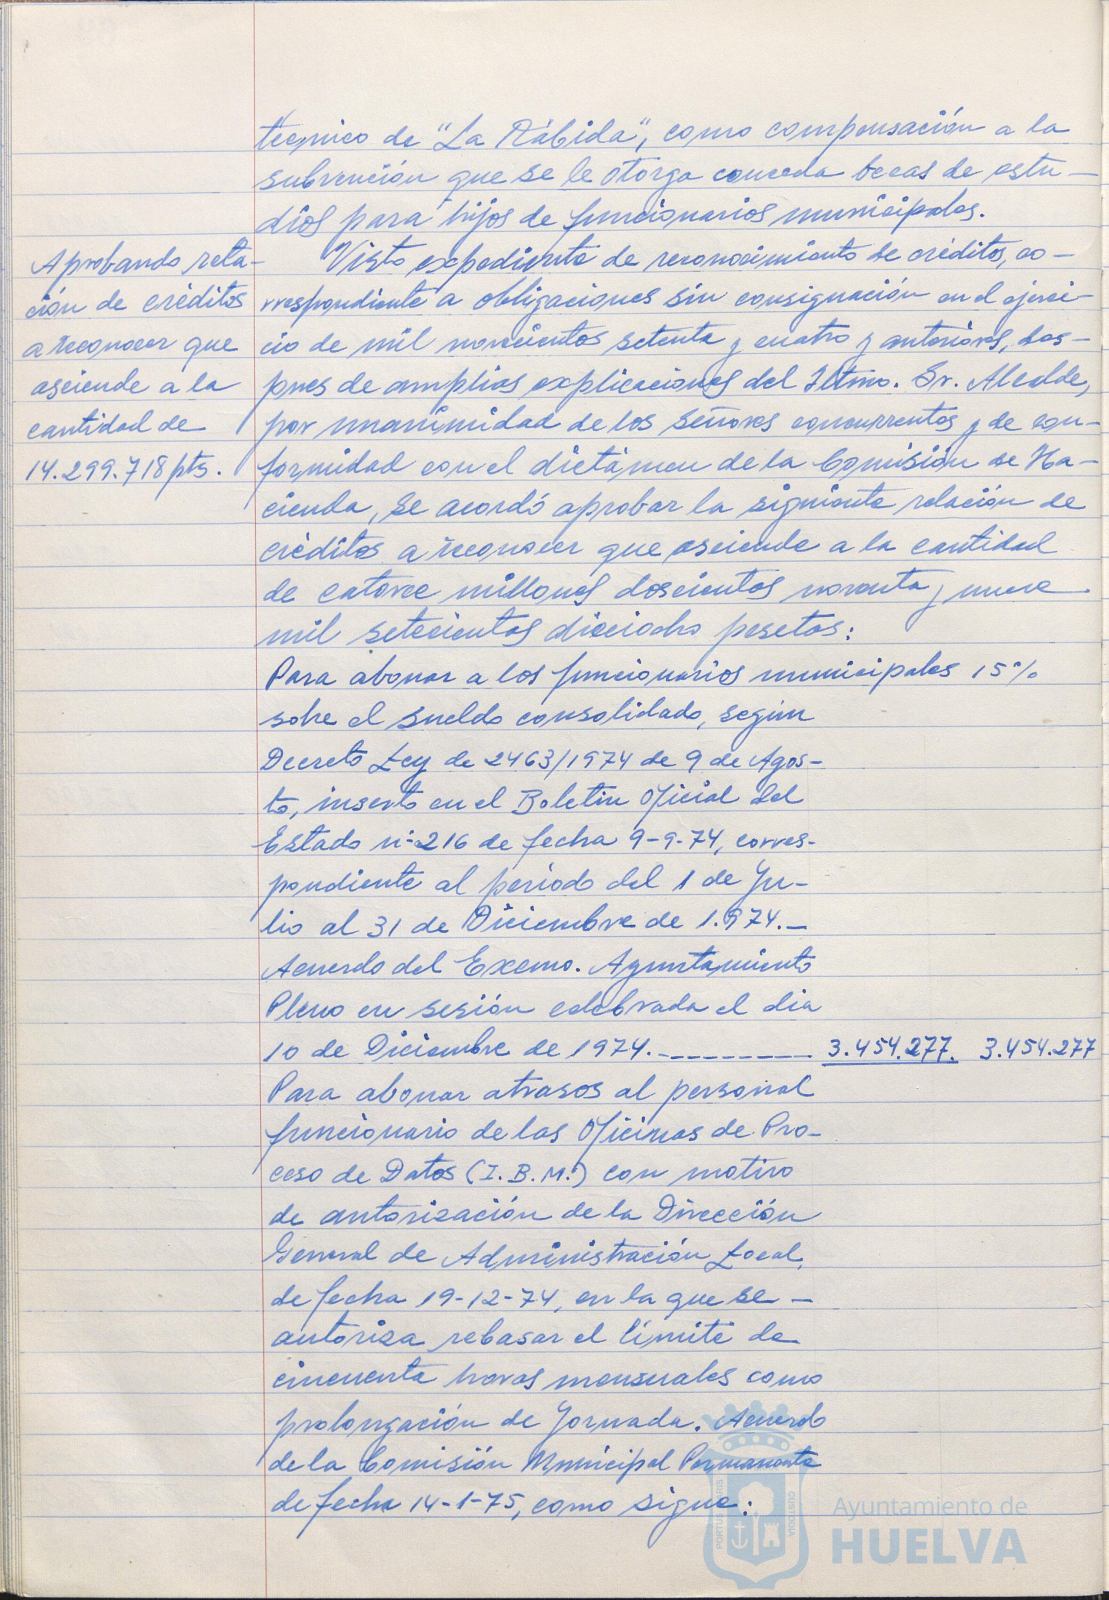 técnico de "La Rábida", como compensación a la
subvención que se le otorga conceda becas de estu-
dios para hijos de funcionarios municipales.
Aprobando rela-
ción de créditos
a reconocer que
asciende a la
cantidad de
14.299.718 pts.
Visto expediente de reconocimiento de créditos, co-
rrespondiente a obligaciones sin consignación en el ejerci-
cio de mil novecientos setenta y cuatro y anteriores, des-
pues de amplias explicaciones del Iltmo. Sr. Alcalde,
por unanimidad de los señores concurrentes y de con-
formidad con el dictámen de la Comisión de Ha-
cienda, se acordó aprobar la siguiente relación de
créditos a reconocer que asciende a la cantidad
de catorce millones doscientos noventa y nueve
mil setecientos dieciocho pesetas:
Para abonar a los funcionarios municipales 15%
sobre el sueldo consolidado, según
Decreto Ley de 2463/1974 de 9 de Agos-
to, inserto en el Boletin Oficial del
Estado nº 216 de fecha 9-9-74, corres-
pondiente al período del 1 de Ju-
lio al 31 de Diciembre de 1.974.-
Acuerdo del Excmo. Ayuntamiento
Pleno en sesión celebrada el dia
10 de Diciembre de 1974.--------- 3.454.277. 3.454.277
Para abonar atrasos al personal
funcionario de las Oficinas de Pro-
ceso de Datos (I.B.M.) con motivo
de autorización de la Dirección
General de Administración Local,
de fecha 19-12-74, en la que se -
autoriza rebasar el límite de
cincuenta horas mensuales como
prolongación de Jornada. Acuerdo
de la Comisión Municipal Permanente
de fecha 14-1-75, como sigue:
Ayuntamiento de
HUELVA